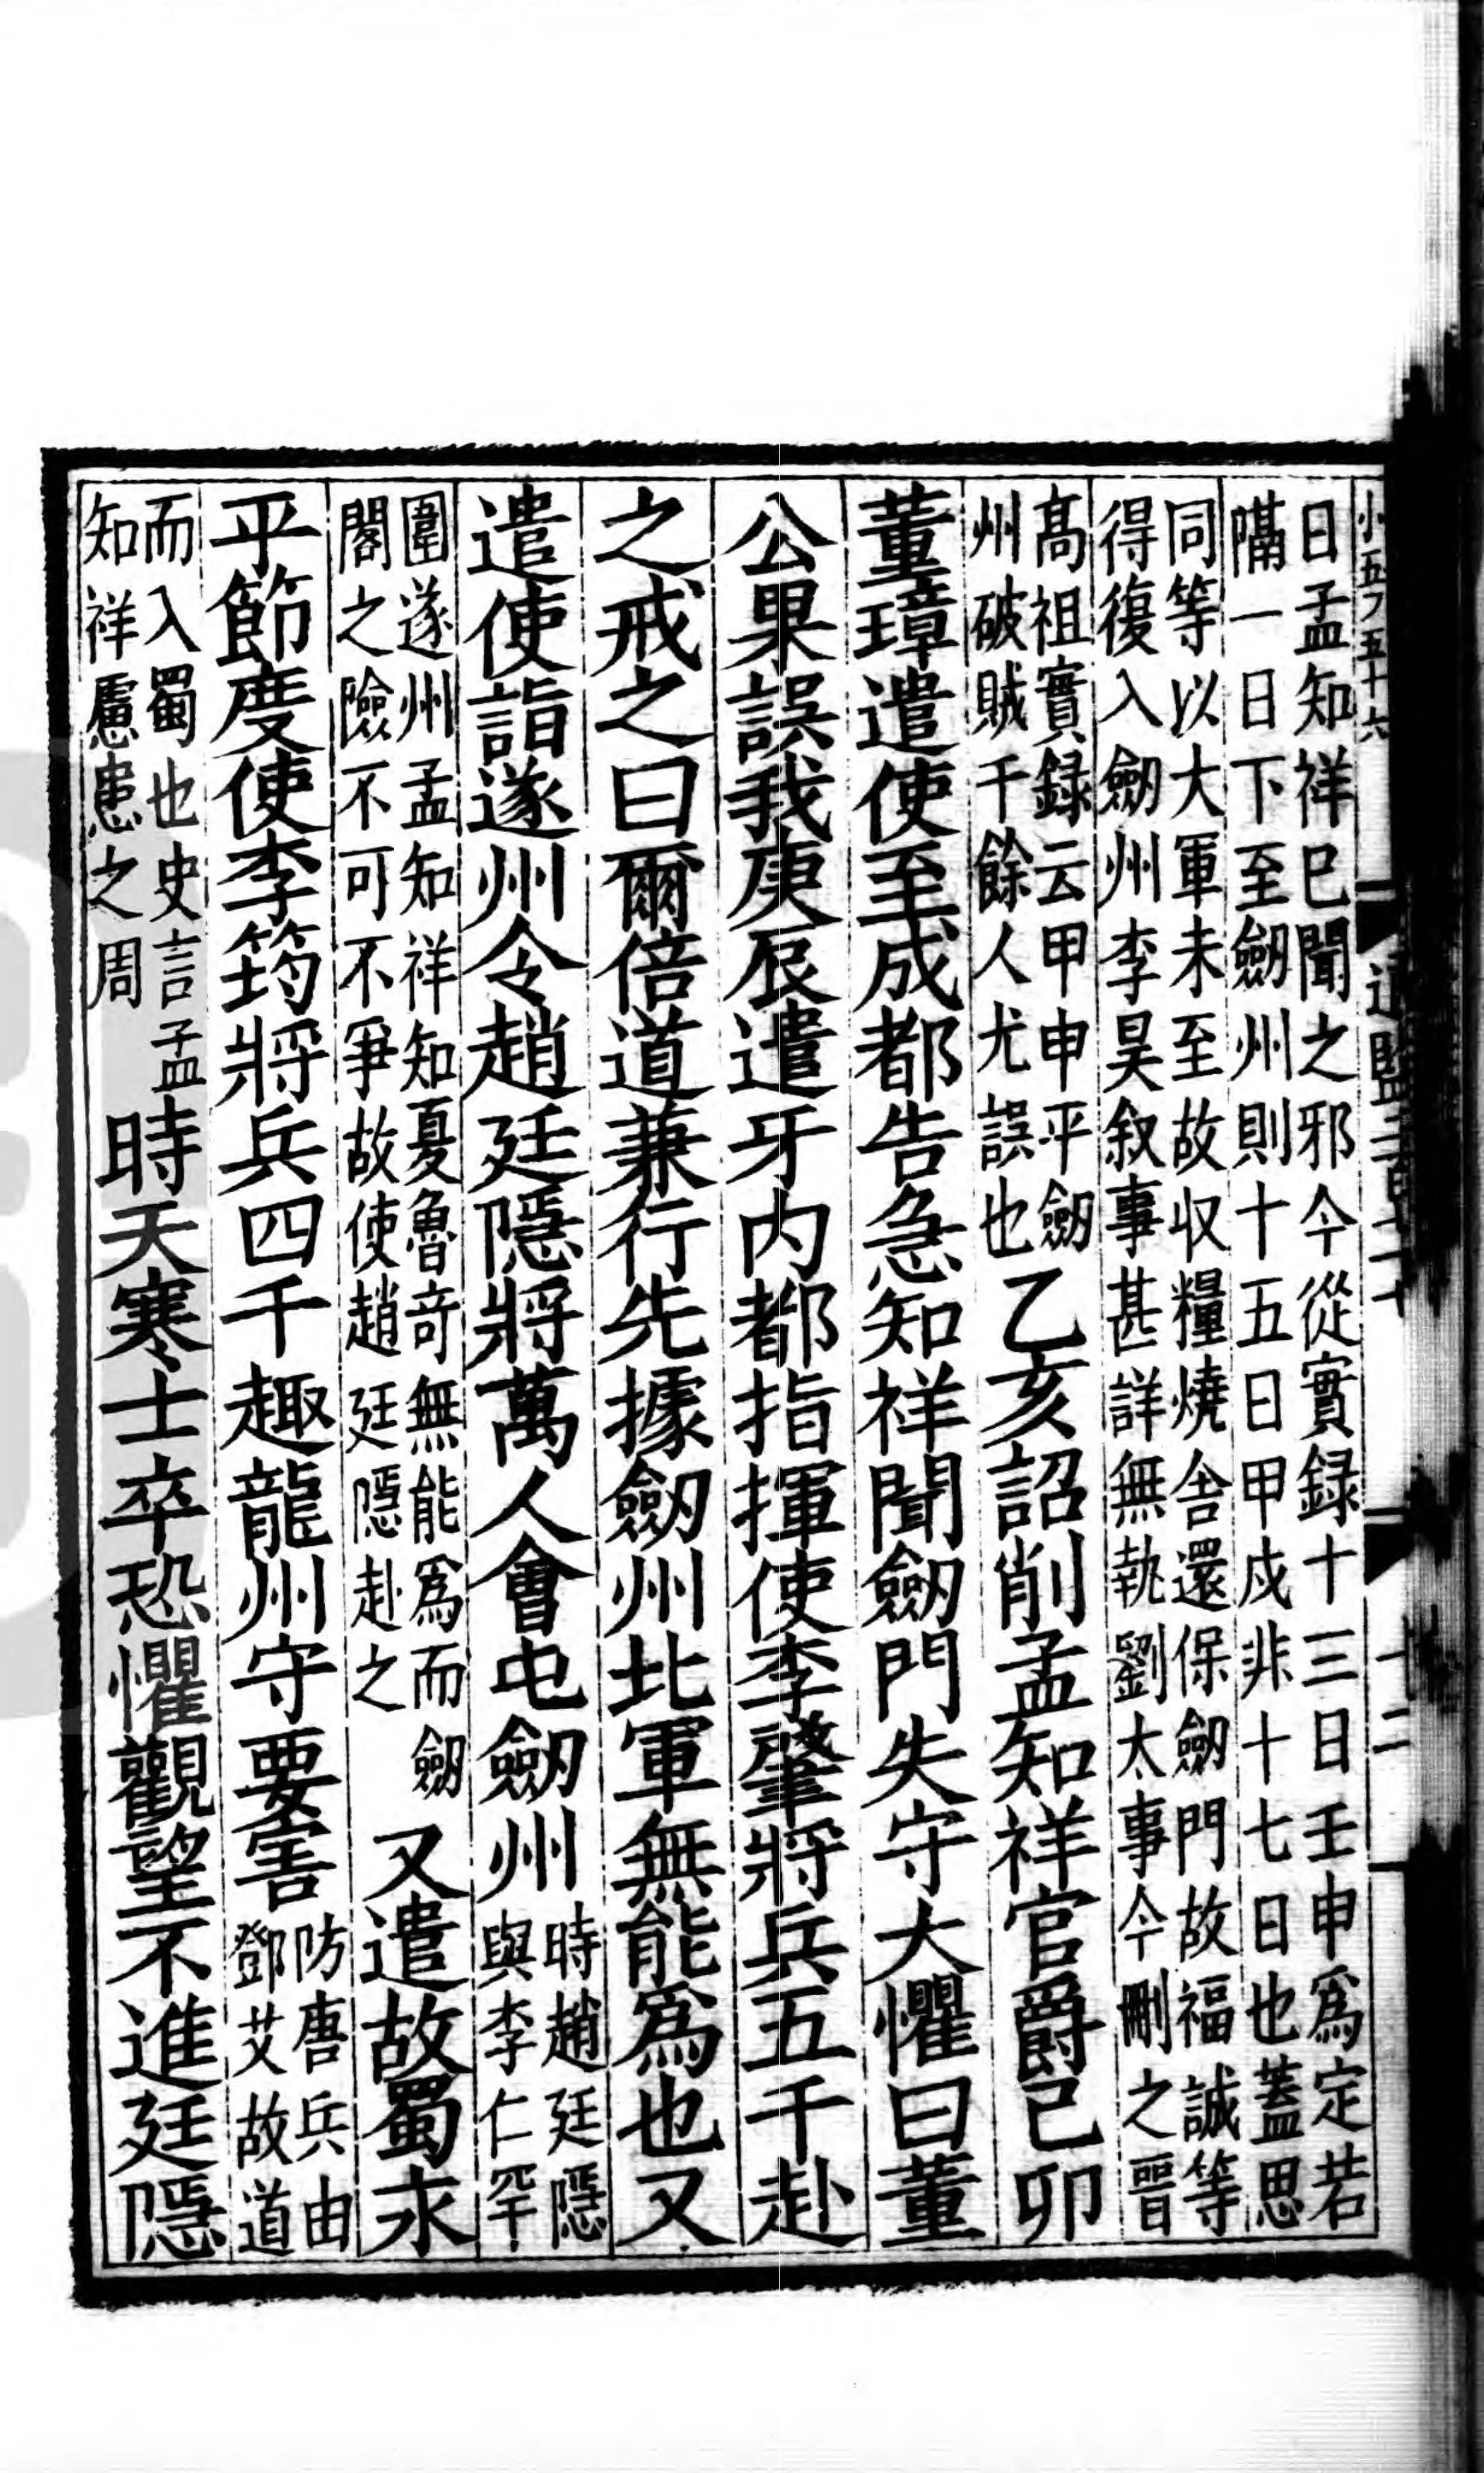 日孟知祥巳聞之邪今從實録十三日壬申爲定若
隔一日下至劒州則十五日甲戌非十七日也蓋思
同等以大軍未至故収糧燒舎還保劒門故福誠等
得復入劒州李昊叙事甚詳無執劉太事今刪之晋
髙祖實録云甲申平劒
州破賊千餘人尤誤也
乙亥詔削孟知祥官爵己卯
董璋遣使至成都告急知祥聞劒門失守大懼曰董
公果誤我庚辰遣牙内都指揮使李肇將兵五千赴
之戒之曰爾倍道兼行先據劒州北軍無能爲也又
遣使詣遂州令趙廷隱將萬人會屯劒州
時趙廷隱
與李仁罕
圍遂州孟知祥知夏魯竒無能爲而劒
閣之險不可不爭故使趙廷隱赴之
又遣故蜀永
平節度使李筠將兵四千趣龍州守要害
防唐兵由
鄧艾故道
而入蜀也史言孟
知祥慮患之周
時天寒士卒恐懼觀望不進廷隱